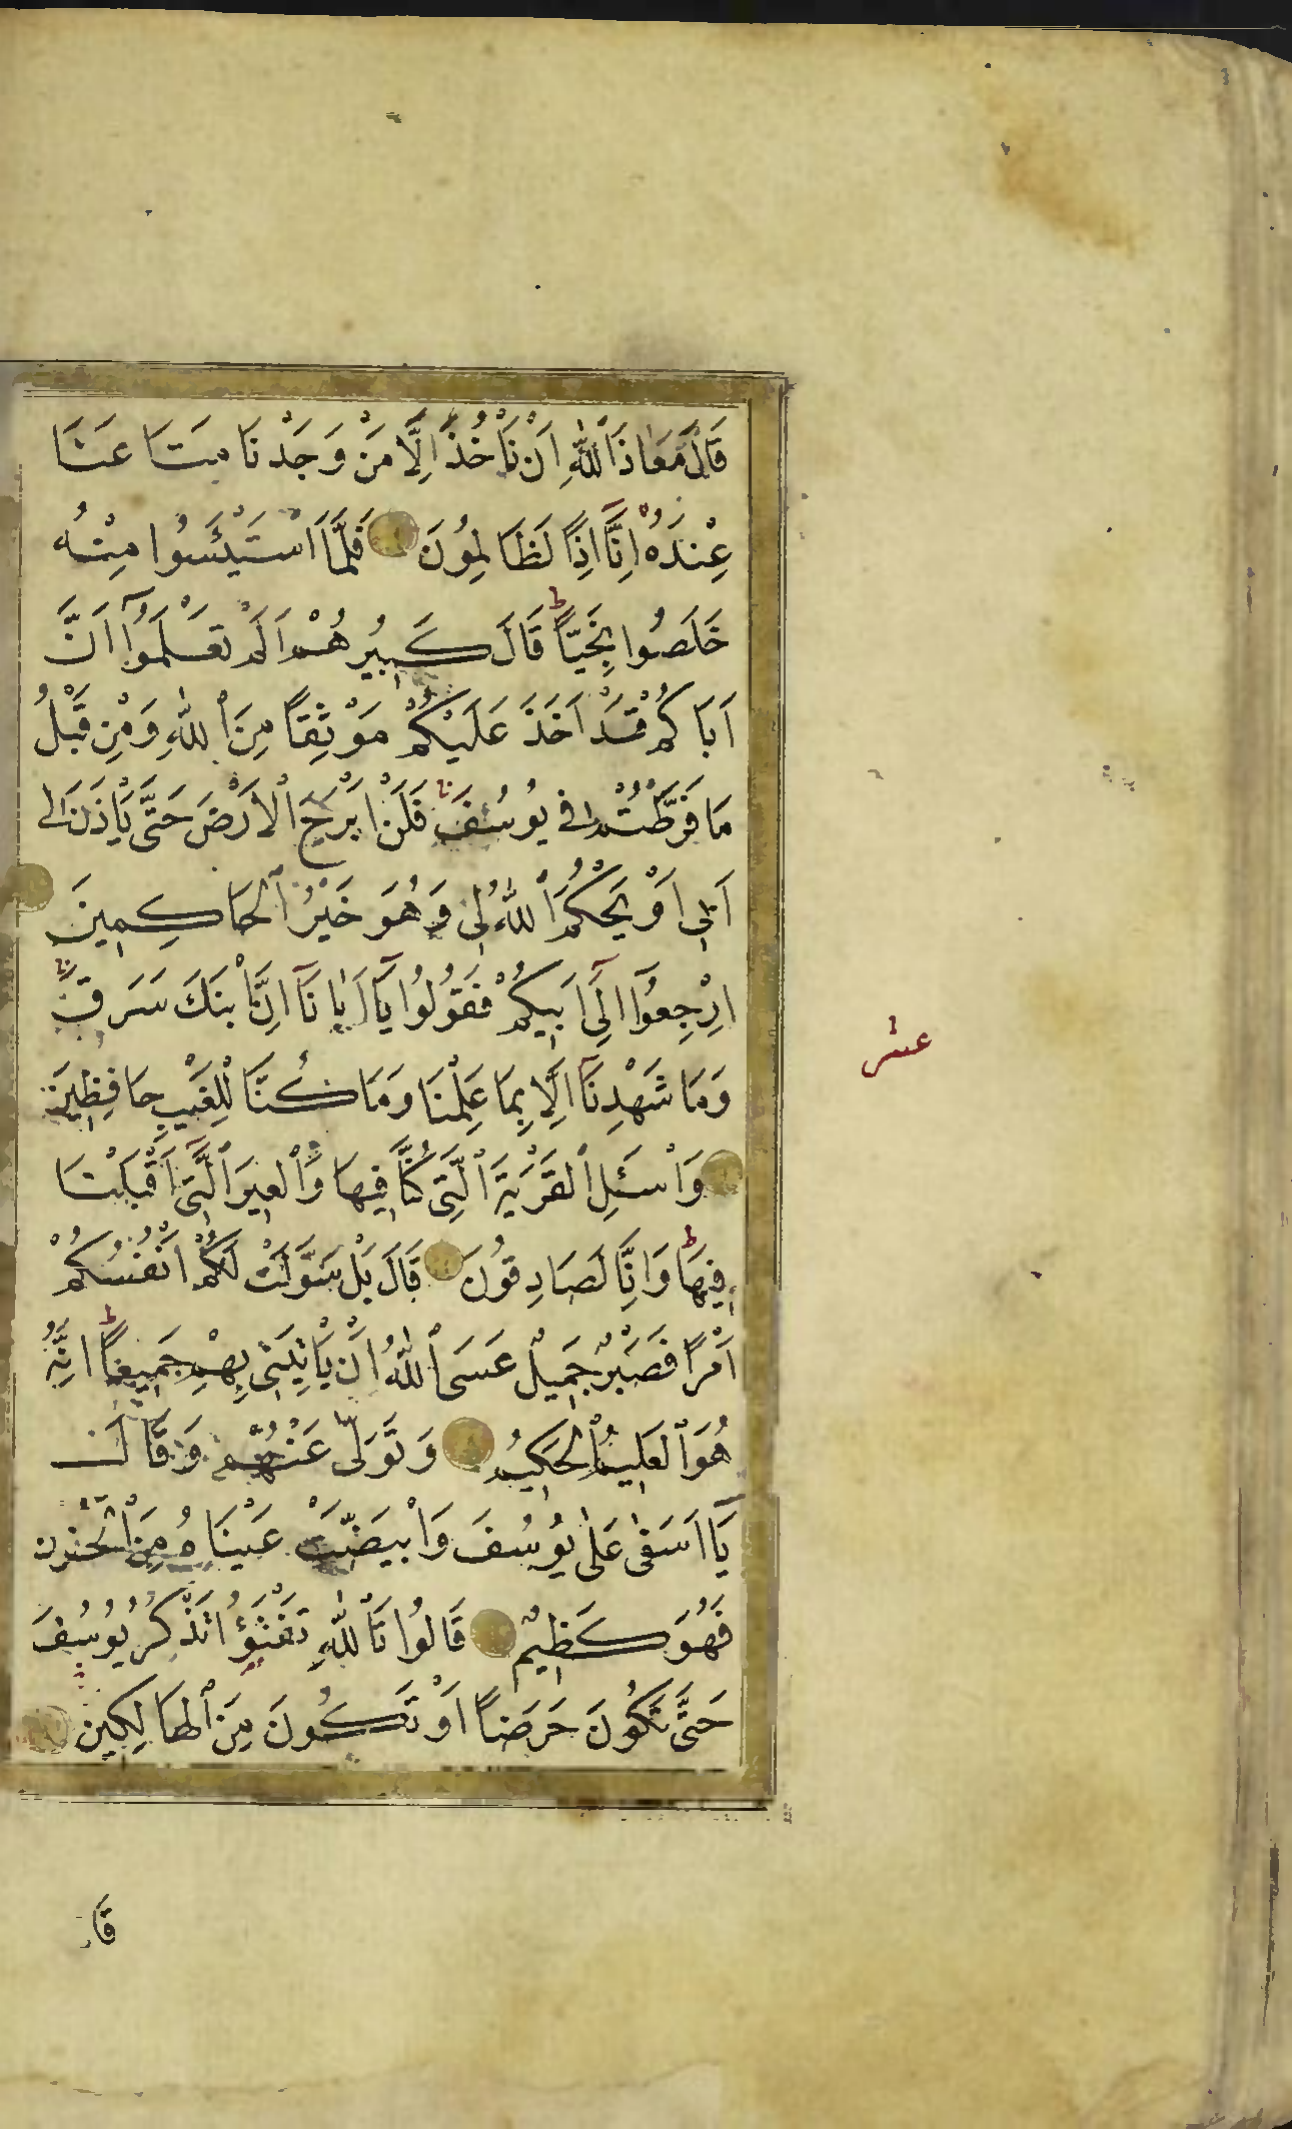 قَالَ مَعَاذَ ٱللّٰهِ اَنْ نَأْخُذَ اِلَّا مَنْ وَجَدْنَا مَتَاعَنَا
عِنْدَهُ اِنَّا اِذًا لَظَالِمُونَ فَلَمَّا اسْتَيْـَٔسُوا مِنْهُ
خَلَصُوا نَجِيًّا ط قَالَ كَبِيرُهُمْ اَلَمْ تَعْلَمُوٓا اَنَّ
اَبَاكُمْ قَدْ اَخَذَ عَلَيْكُمْ مَوْثِقًا مِنَ ٱللّٰهِ وَمِنْ قَبْلُ
مَا فَرَّطْتُمْ فِى يُوسُفَ فَلَنْ اَبْرَحَ ٱلْاَرْضَ حَتَّى يَأْذَنَ لِى
اَبِى اَوْ يَحْكُمَ ٱللّٰهُ لِى وَهُوَ خَيْرُ ٱلْحَاكِمِينَ
اِرْجِعُوٓا اِلَٓى اَبِيكُمْ فَقُولُوا يَٓا اَبَانَٓا اِنَّ ٱبْنَكَ سَرَقَ
وَمَا شَهِدْنَٓا اِلَّا بِمَا عَلِمْنَا وَمَا كُنَّا لِلْغَيْبِ حَافِظِينَ
وَاسْـَٔلِ ٱلْقَرْيَةَ ٱلَّتِى كُنَّا فِيهَا وَٱلْعِيرَ ٱلَّتِٓى اَقْبَلْنَا
فِيهَا ط وَاِنَّا لَصَادِقُونَ قَالَ بَلْ سَوَّلَتْ لَكُمْ اَنْفُسُكُمْ
اَمْرًا فَصَبْرٌ جَمِيلٌ عَسَى ٱللّٰهُ اَنْ يَأْتِيَنِى بِهِمْ جَمِيعًا ط اِنَّهُ
هُوَ ٱلْعَلِيمُ ٱلْحَكِيمُ وَتَوَلّٰى عَنْهُمْ وَقَالَ
يَٓا اَسَفٰى عَلٰى يُوسُفَ وَابْيَضَّتْ عَيْنَاهُ مِنَ ٱلْحُزْنِ
فَهُوَ كَظِيمٌ قَالُوا تَٱللّٰهِ تَفْتَؤُا تَذْكُرُ يُوسُفَ
حَتَّى تَكُونَ حَرَضًا اَوْ تَكُونَ مِنَ ٱلْهَالِكِينَ
عشر
قَا